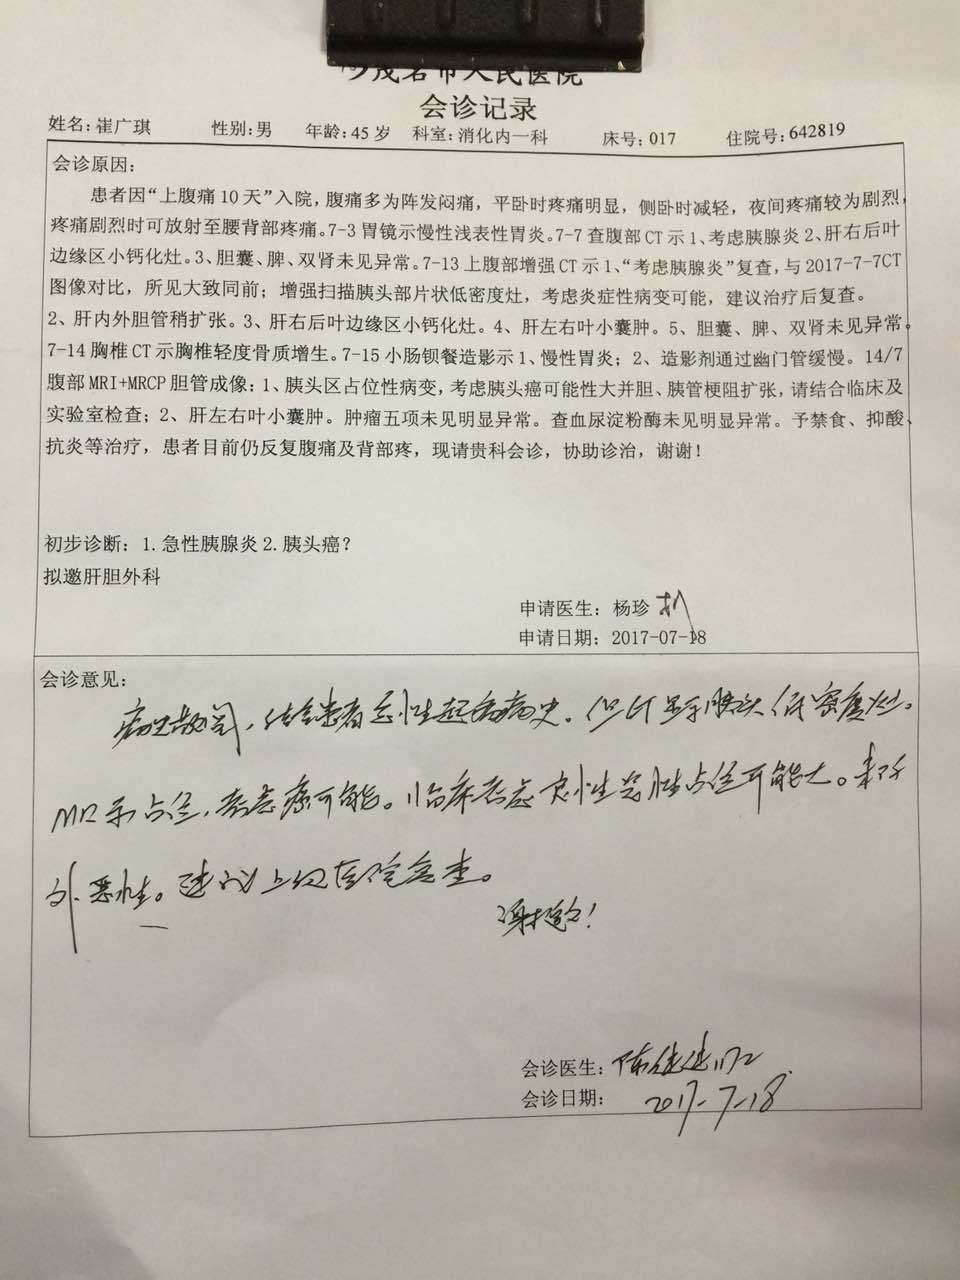 茂名市人民医院
会诊记录
姓名：崔广琪 性别：男 年龄：45 岁 科室：消化内一科 床号：017 住院号：642819
会诊原因：
患者因“上腹痛 10 天”入院，腹痛多为阵发闷痛，平卧时疼痛明显，侧卧时减轻，夜间疼痛较为剧烈，
疼痛剧烈时可放射至腰背部疼痛。7-3 胃镜示慢性浅表性胃炎。7-7 查腹部 CT 示 1、考虑胰腺炎 2、肝右后叶
边缘区小钙化灶。3、胆囊、脾、双肾未见异常。7-13 上腹部增强 CT 示 1、“考虑胰腺炎”复查，与 2017-7-7CT
图像对比，所见大致同前；增强扫描胰头部片状低密度灶，考虑炎症性病变可能，建议治疗后复查。
2、肝内外胆管稍扩张。3、肝右后叶边缘区小钙化灶。4、肝左右叶小囊肿。5、胆囊、脾、双肾未见异常。
7-14 胸椎 CT 示胸椎轻度骨质增生。7-15 小肠钡餐造影示 1、慢性胃炎；2、造影剂通过幽门管缓慢。14/7
腹部 MRI+MRCP 胆管成像：1、胰头区占位性病变，考虑胰头癌可能性大并胆、胰管梗阻扩张，请结合临床及
实验室检查；2、肝左右叶小囊肿。肿瘤五项未见明显异常。查血尿淀粉酶未见明显异常。予禁食、抑酸、
抗炎等治疗，患者目前仍反复腹痛及背部疼，现请贵科会诊，协助诊治，谢谢！
初步诊断：1.急性胰腺炎 2.胰头癌？
拟邀肝胆外科
申请医生：杨珍
申请日期：2017-07-18
会诊意见：
病史敬阅，结合患者急性起病病史。但CT显示胰头低密度灶。
MR示占位，考虑癌可能。临床考虑炎性占位可能大。未除
外恶性。建议上级医院复查。
谢邀！
会诊医生：陈
会诊日期：2017-7-18